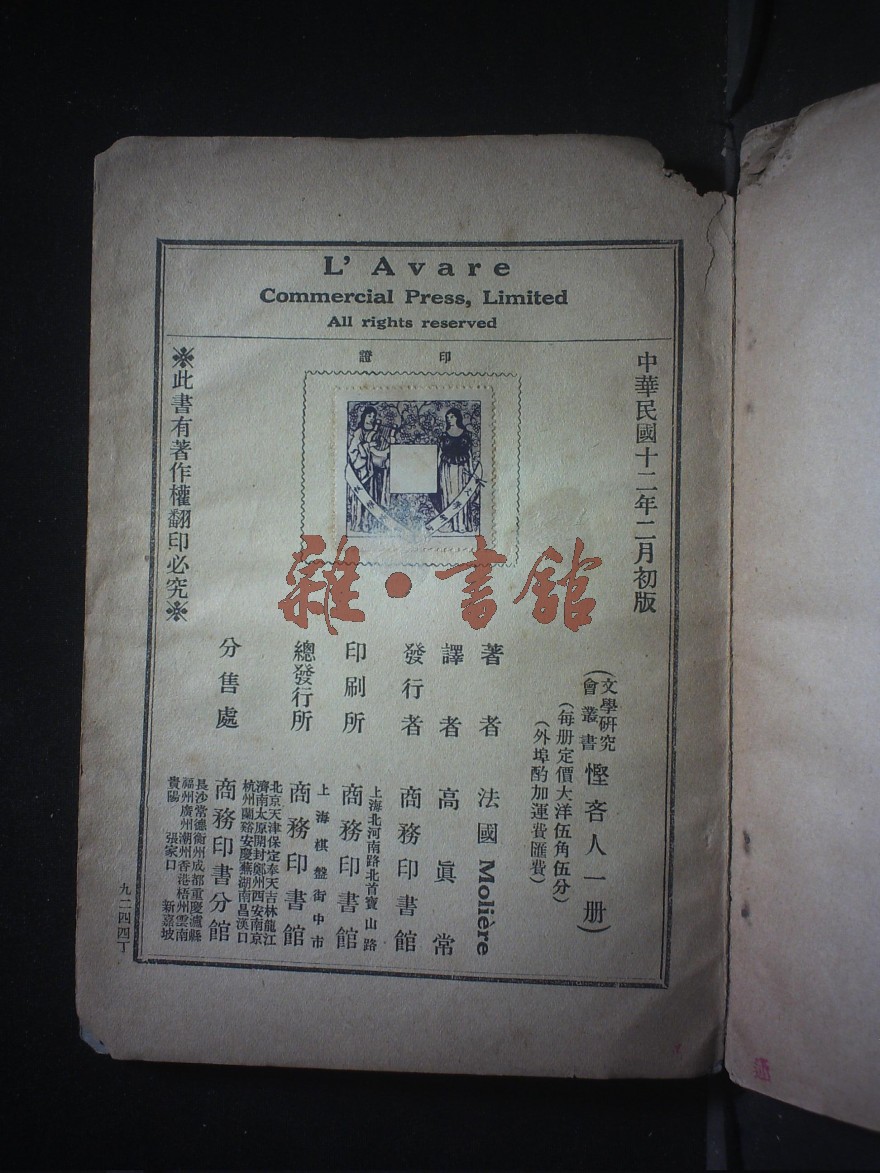 L' Avare
Commercial Press, Limited
All rights reserved
中華民國十二年二月初版
文學研究會叢書
慳吝人一册
(每册定價大洋伍角伍分)
(外埠酌加運費匯費)
著者 法國 Molière
譯者 高眞常
發行者 商務印書館
上海北河南路北首寶山路
印刷所 商務印書館
上海棋盤街中市
總發行所 商務印書館
北京天津保定奉天吉林龍江
濟南太原開封鄭州西安南京
杭州蘭谿安慶蕪湖南昌漢口
分售處 商務印書分館
長沙常德衡州成都重慶瀘縣
福州廣州潮州香港梧州雲南
貴陽 張家口 新嘉坡
印證
※此書有著作權翻印必究※
九二四四丁
雜·書館